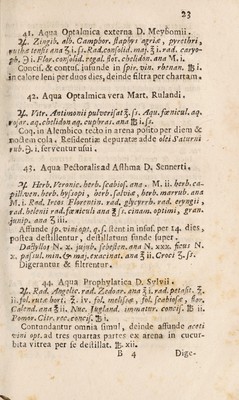 23
41. Aqua Optalmica externa D. Meyſſomii.
℞. Zingib. alb. Camphor. ſtaphys agriæ, pyrethri,
matha tenſis ana ʒ i. ſs. Rad. conſolid. maj. ℥ i. rad. caryo-
ph. ℈ i. Flor. conſolid. regal. flor. chelidon. ana M. i.
Conciſ. & contuſ. infunde in ſpir. vin. rhenan. ℔ i.
in calore leni per duos dies, deinde filtra per chartam.
42. Aqua Optalmica vera Mart. Rulandi.
℞. Vitr. Antimonii pulveriſat ℥. ſs. Aqu. fœnicul. aq.
roſar. aq. chelidon aq. euphras. ana ℔ i. ſs.
Coq. in Alembico tecto in arena poſito per diem &
noctem cola. Reſidentiæ depuratæ adde olei Saturni
rub. ℈. i. ſerventur uſui.
43. Aqua Pectoralis ad Aſthma D. Sennerti.
℞ Herb. Veronic. herb. ſcabioſ. ana. M. ii. herb. ca-
pill. ven. herb. hyſopi, herb. ſalviæ, herb. marrub. ana
M. i. Rad. Ireos Florentin. rad. glycyrrh. rad. eryngii,
rad. helenii rad. fœniculi ana ℥ ſs. cinam. optimi, gran.
junip. ana ʒ iii.
Affunde ſp. vini aq. q. ſ. ſtent in infuſ. per 14. dies,
poſtea deſtillentur, deſtillatum funde ſuper
Dactyllos N. x. jujub. ſebeſten. ana N. xxx. ficus N.
x. paſſul. min. & maj. exacinat. ana ℥ ii. Croci ʒ. ſs.
Digerantur & filtrentur.
44. Aqua Prophylatica D. Sylvii.
℞. Rad. Angelic. rad. Zedoar. ana ℥ i. rad. petaſit. ℥.
ii. fol. rutæ hort. ℥. iv. fol. meliſſæ, fol. ſcabioſæ, flor.
Calend. ana ℥ ii. Nuc. Jugland. immatur. conciſ. ℔ ii.
Pomor. Citr. rec. conciſ. ℔ i.
Contundantur omnia ſimul, deinde affunde aceti
vini opt. ad tres quartas partes ex arena in cucur-
bita vitrea per ſe deſtillat. ℔. xii.
B 4 Dige-